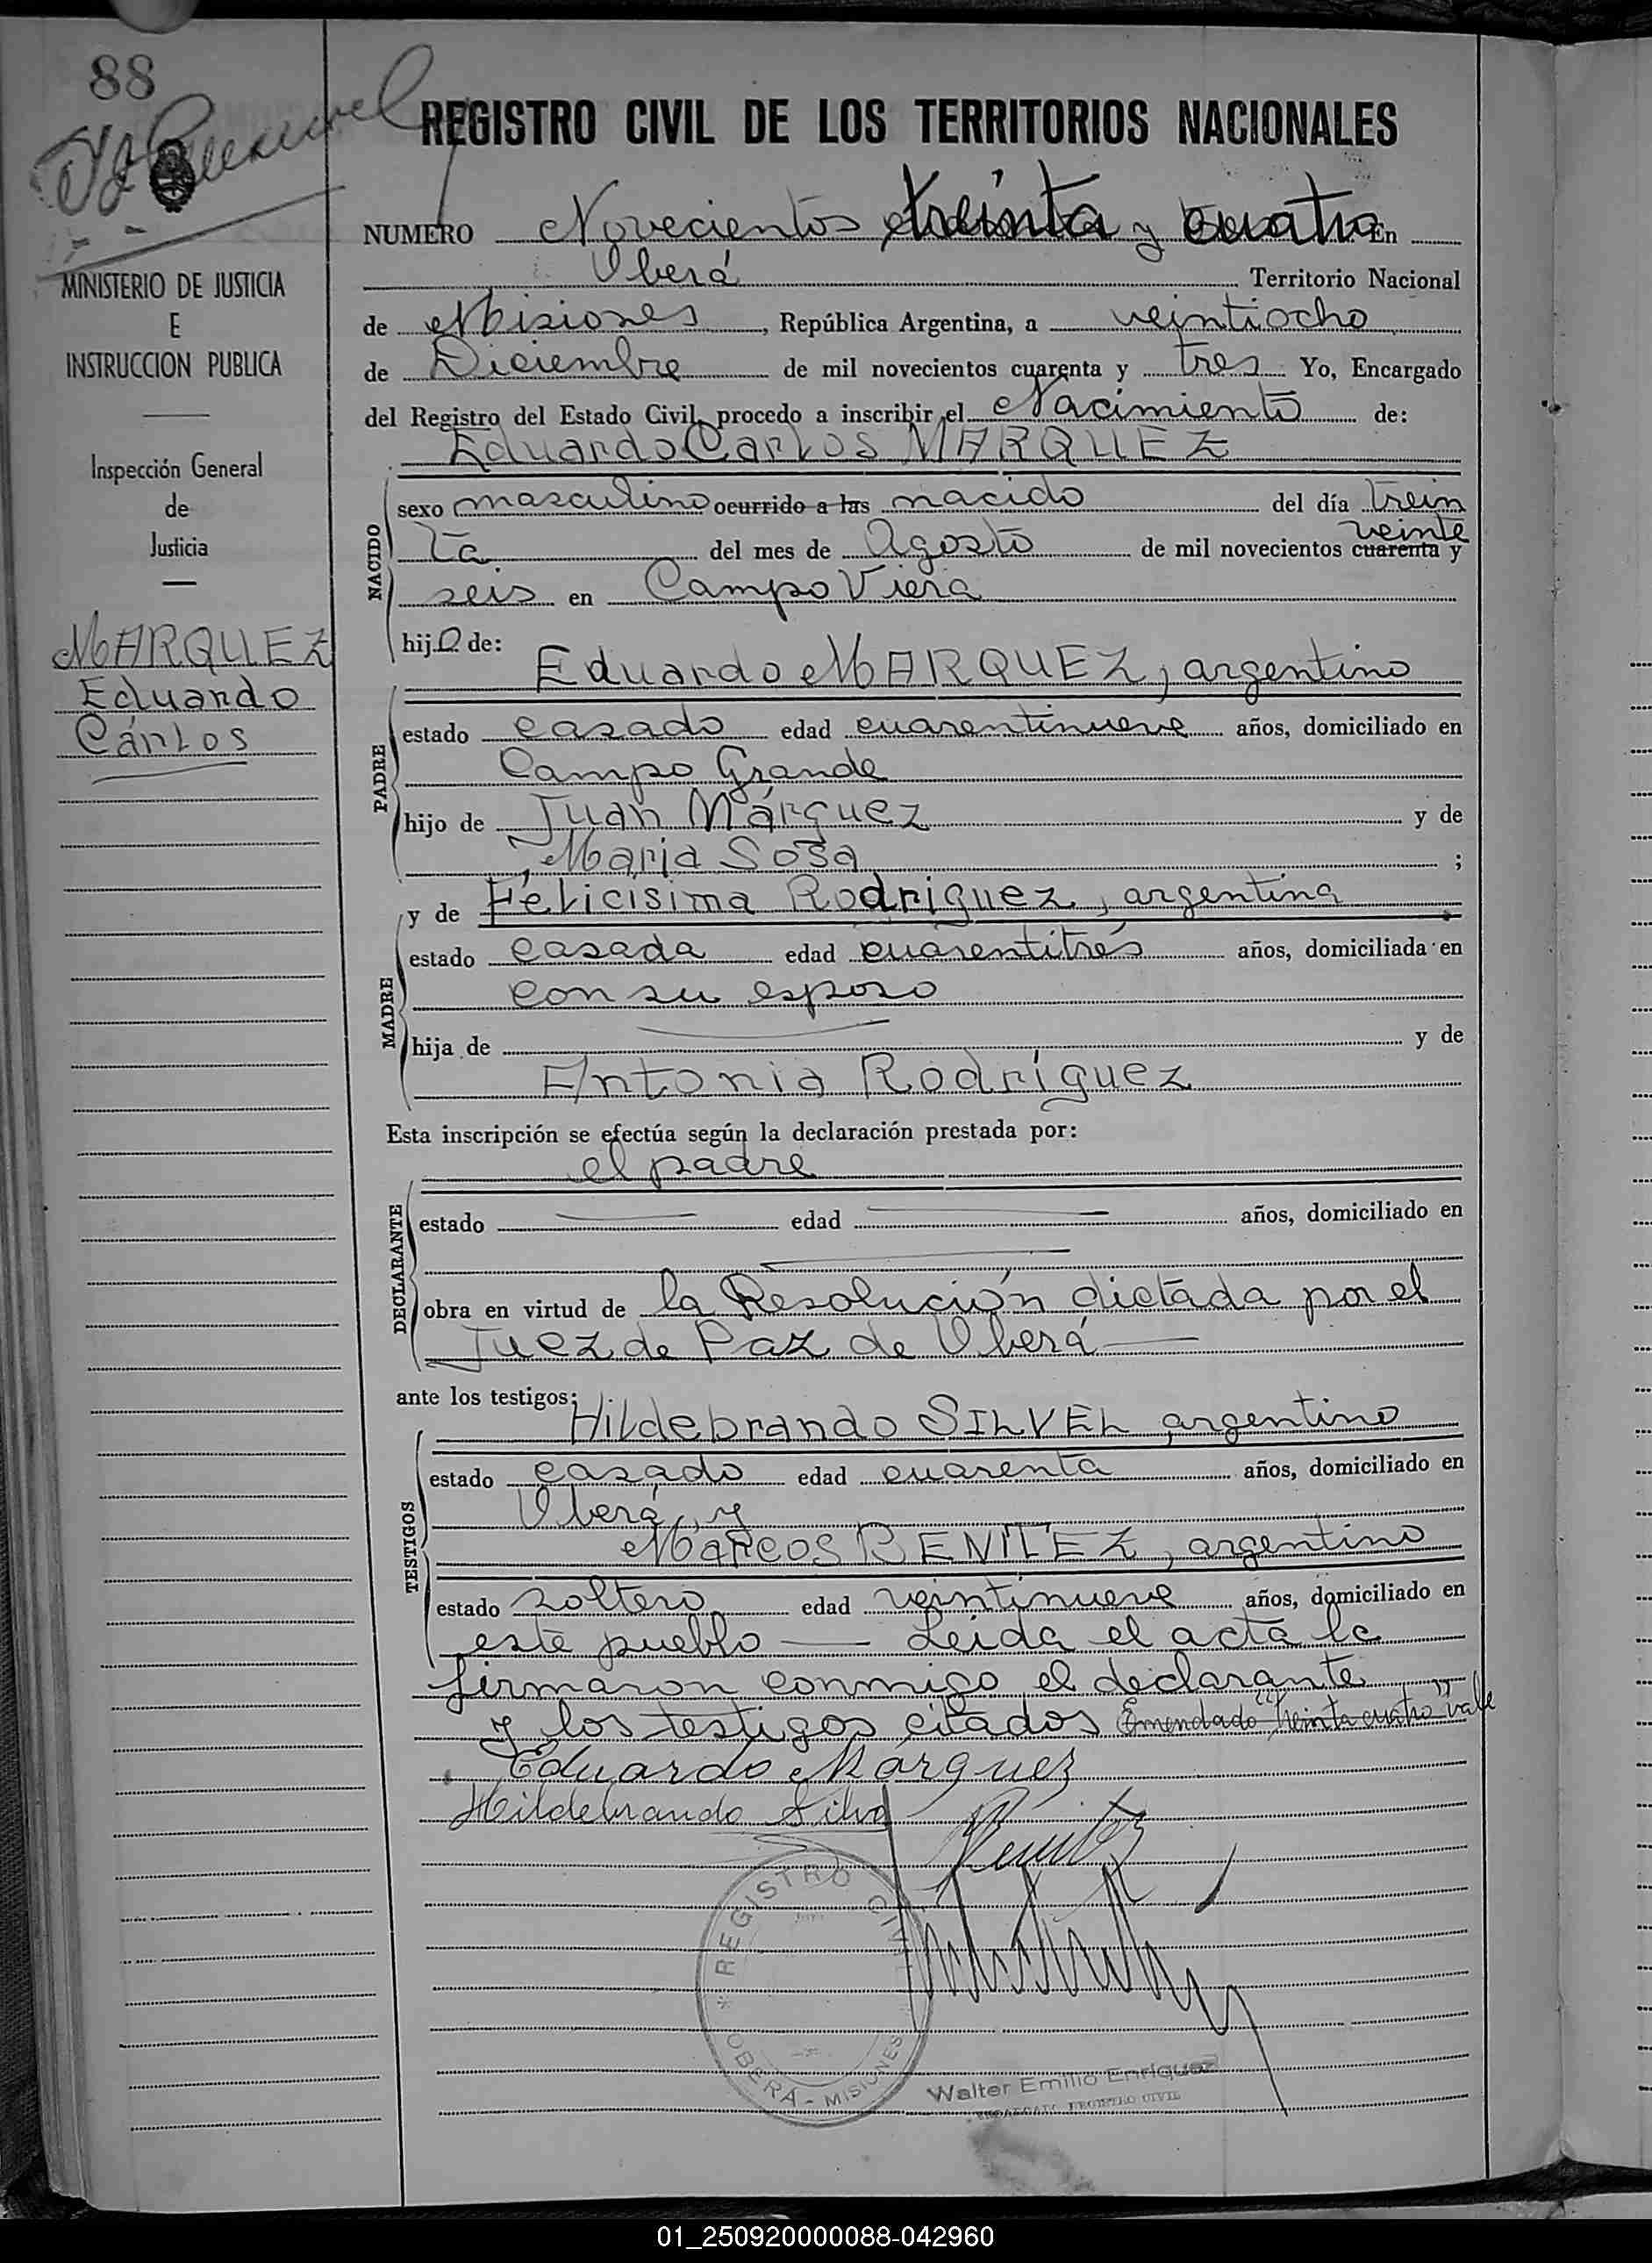 88
REGISTRO CIVIL DE LOS TERRITORIOS NACIONALES
NUMERO Novecientos treinta y cuatro En
Oberá Territorio Nacional
de Misiones, República Argentina, a veintiocho
de Diciembre de mil novecientos cuarenta y tres Yo, Encargado
del Registro del Estado Civil, procedo a inscribir el Nacimiento de:
Eduardo Carlos MARQUEZ
NACIDO
sexo masculino ocurrido a las nacido del día trein
ta del mes de Agosto de mil novecientos cuarenta y veinte
seis en Campo Viera
hijo de:
PADRE
Eduardo MARQUEZ, argentino
estado casado edad cuarentinueve años, domiciliado en
Campo Grande
hijo de Juan Márquez y de
María Sosa ;
MADRE
y de Felicísima Rodriguez, argentina
estado casada edad cuarentitrés años, domiciliada en
con su esposo
hija de y de
Antonia Rodríguez
Esta inscripción se efectúa según la declaración prestada por:
DECLARANTE
el padre
estado edad años, domiciliado en
obra en virtud de la Resolución dictada por el
Juez de Paz de Oberá
ante los testigos:
TESTIGOS
Hildebrando SILVEL argentino
estado casado edad cuarenta años, domiciliado en
Oberá, y
Marcos BENITEZ, argentino
estado soltero edad veintinueve años, domiciliado en
este pueblo — Leída el acta la
firmaron conmigo el declarante
y los testigos citados Emendado "treinta cuatro" vale
Eduardo Márquez
Hildebrando Silva
Benitez
REGISTRO CIVIL
OBERA - MISIONES
Walter Emilio Enriquez
REGISTRO CIVIL
MINISTERIO DE JUSTICIA
E
INSTRUCCION PUBLICA
Inspección General
de
Justicia
MARQUEZ
Eduardo
Cárlos
01_250920000088-042960